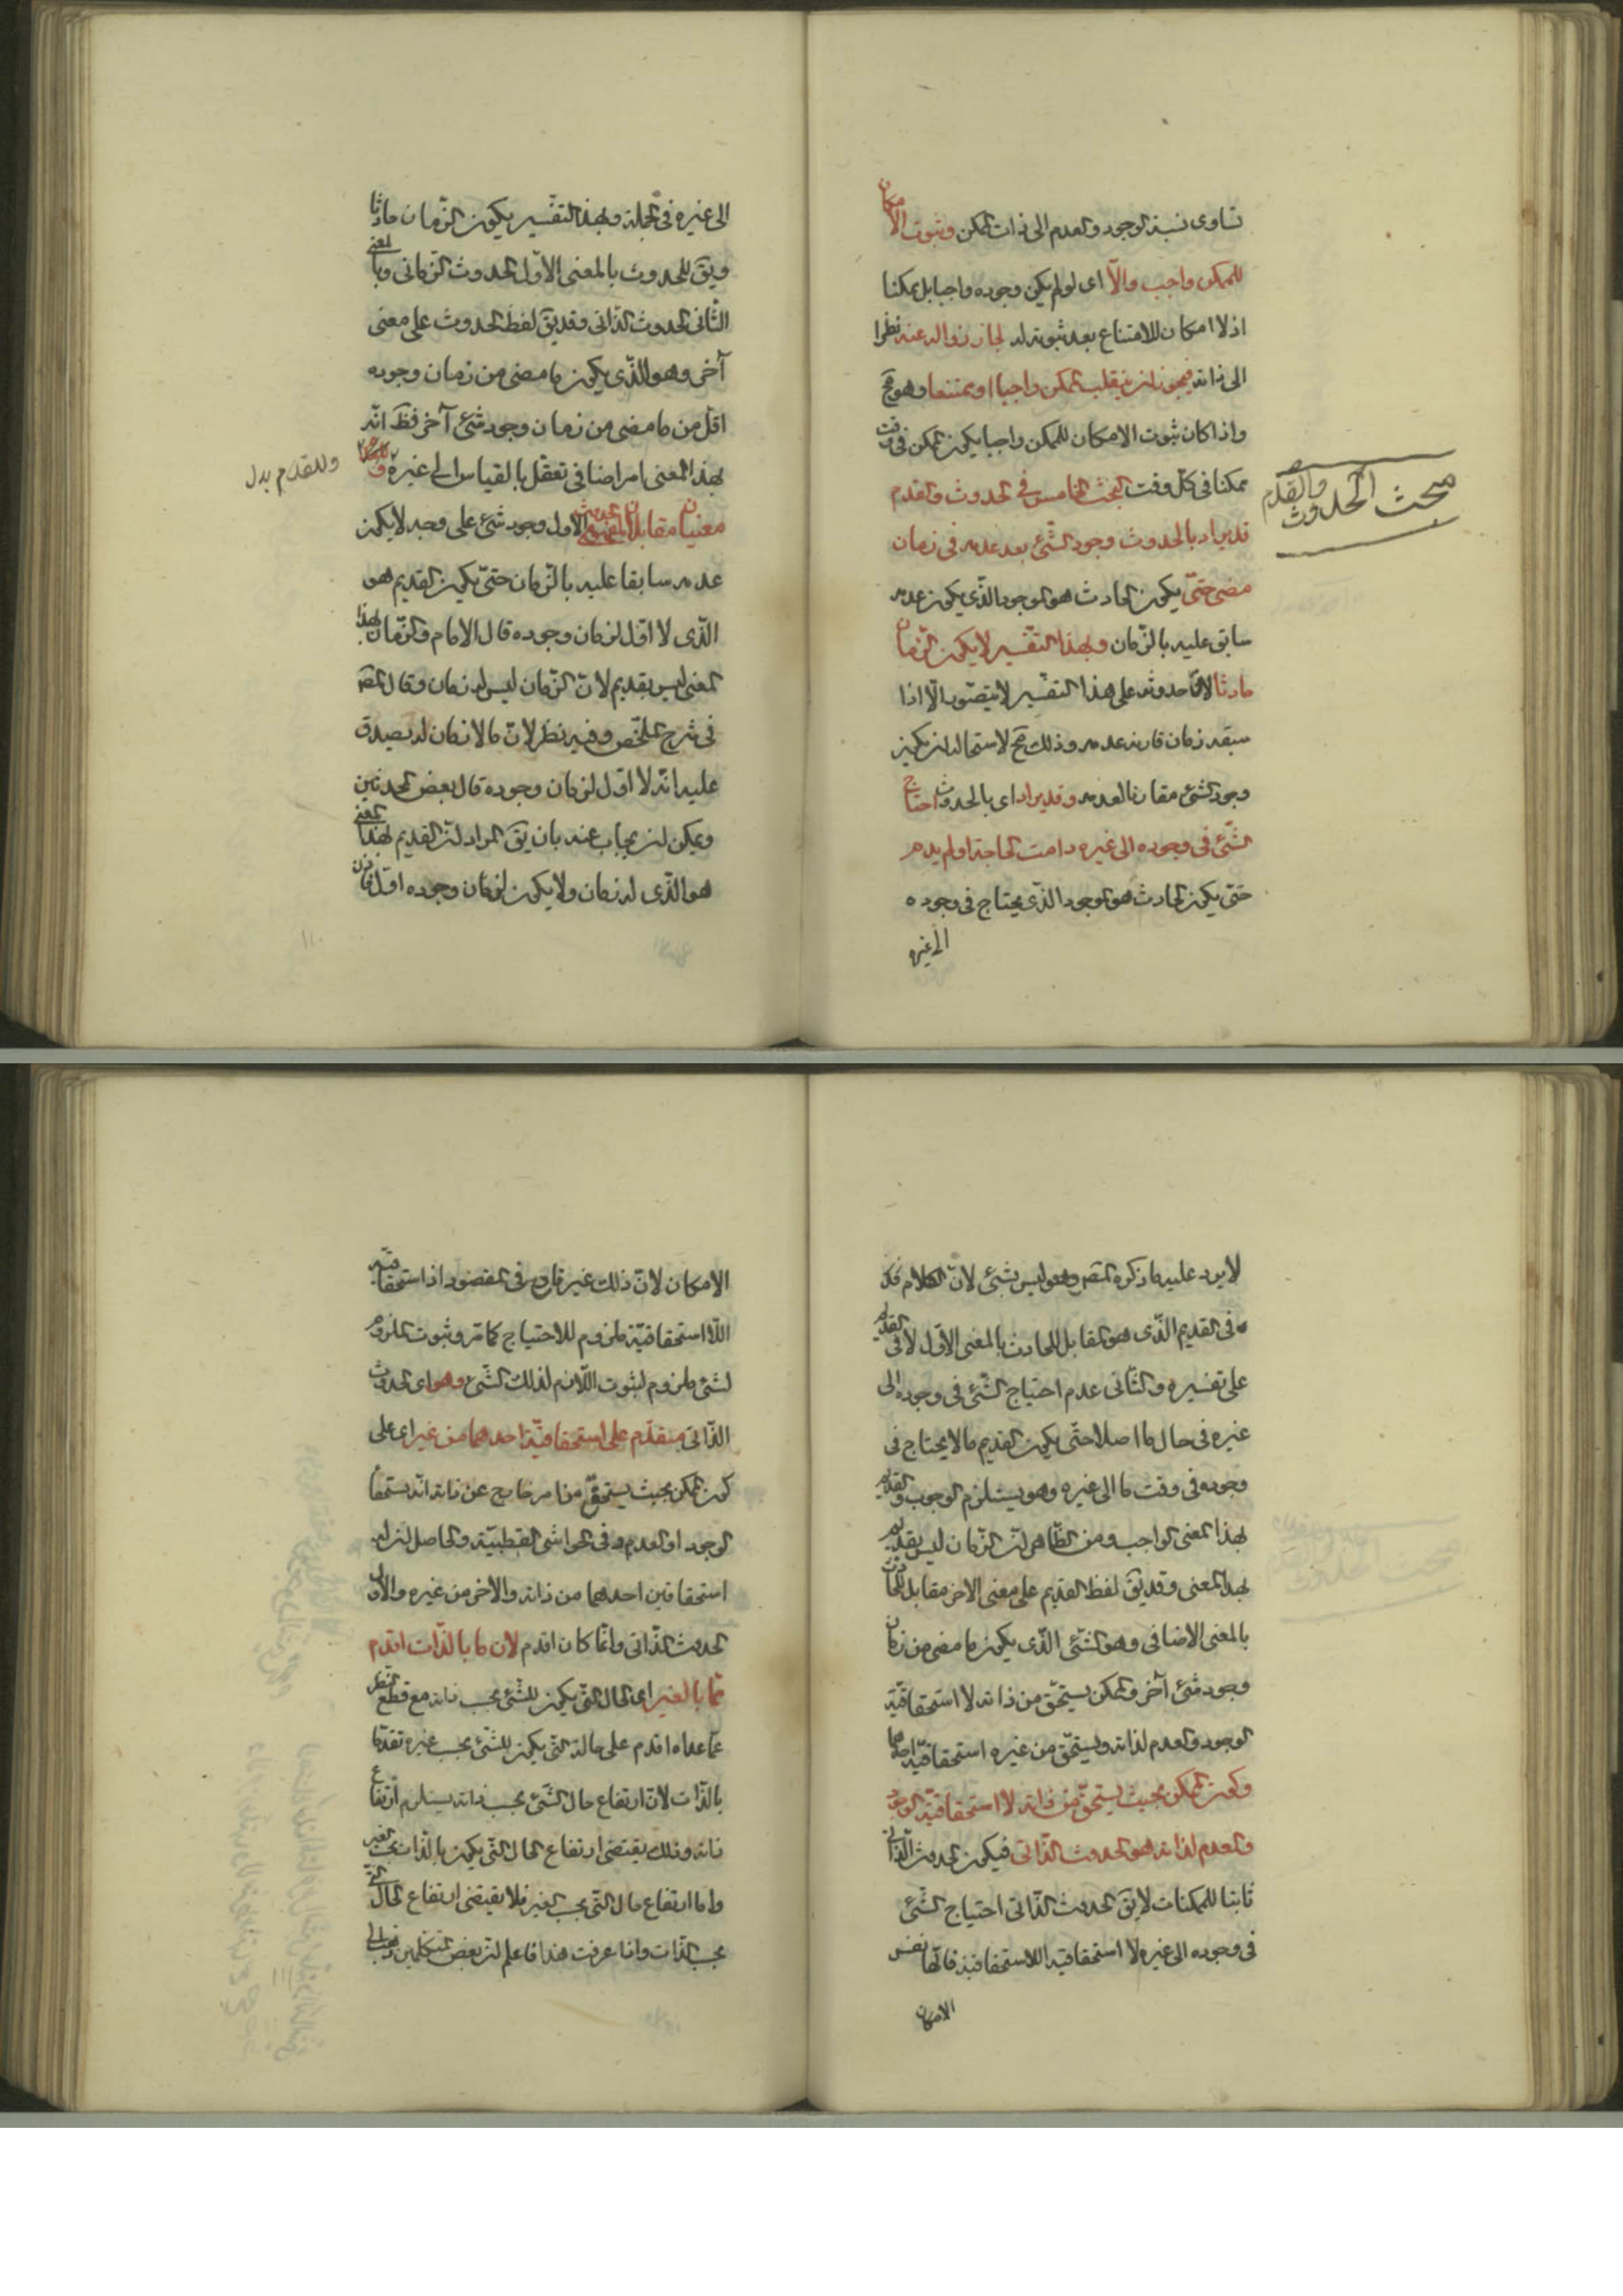 تساوى نسبة الوجود والعدم الى ذات الممكن وثبوت الامكان
للممكن واجب والّا اى لو لم يكن وجوده واجبا بل ممكنا
اذ لا امكان للامتناع بعد ثبوته له لجاز زواله عنه نظرا
الى ذاته فيجوز ان ينقلب الممكن واجبا او ممتنعا وهو مح
واذا كان ثبوت الامكان للممكن واجبا يكون الممكن فى وقت
ممكنا فى كلّ وقت البحث الخامس فى الحدوث والقدم
قد يراد بالحدوث وجود الشّئ بعد عدمه فى زمان
مضى حتّى يكون الحادث هو الموجود الّذى يكون عدمه
سابق عليه بالزّمان وبهذا التفسير لا يكون الزّمان
حادثا لانّ حدوثه على هذا التفسير لا يتصّور الّا اذا
سبقه زمان قارنه عدمه وذلك مح لاستحالة ان يكون
وجود الشئ مقارنا لعدمه وقد يراد اى بالحدوث احتياج
الشّئ فى وجوده الى غيره دامت الحاجة او لم يدم
حتى يكون الحادث هو الموجود الذى يحتاج فى وجوده
الى غيره
مبحث الحدوث والقدم
الى غيره فى الجملة وبهذا التفسير يكون الزّمان حادثا
ويق للحدوث بالمعنى الاوّل الحدوث الزمانى وبالمعنى
الثّانى الحدوث الذّاتى وقد يق لفظ الحدوث على معنى
آخر وهو الّذى يكون ما مضى من زمان وجوده
اقلّ من ما مضى من زمان وجود شئ آخر فظ انّه
بهذا المعنى امر اضافى تعقل بالقياس الى غيره و
معنيان مقابلان الاول وجود شئ على وجه لا يكون
عدمه سابقا عليه بالزّمان حتّى يكون القديم هو
الّذى لا اوّل لزمان وجوده قال الامام والزّمان بهذا
المعنى ليس بقديم لانّ الزّمان ليس له زمان وقال المص
فى شرح الملخّص وفيه نظر لانّ ما لا زمان له يصدق
عليه انّه لا اوّل لزمان وجوده قال بعض المحدثين
ويمكن ان يجاب عنه بان يق المراد انّ القديم بهذا المعنى
هو الّذى له زمان ولا يكون لزمان وجوده اوّل فاذن
وللقدم بدل
لا يرد عليه ما ذكره المص وهو ليس بشئ لانّ الكلام
فى القديم الّذى هو المقابل للحادث بالمعنى الاوّل لا فى القديم
على تفسيره والثّانى عدم احتياج الشّئ فى وجوده الى
غيره فى حال ما اصلا حتّى يكون القديم ما لا يحتاج فى
وجوده فى وقت ما الى غيره وهو يستلزم الوجوب والقديم
بهذا المعنى الواجب ومن الظّاهر انّ الزّمان ليس بقديم
بهذا المعنى وقد يق لفظ القديم على معنى الاخر مقابل للحادث
بالمعنى الاضافى وهو الشّئ الّذى يكون ما مضى من زمان
وجود شئ آخر والممكن يستحّق من ذاته لا استحقاقيّة
الوجود والعدم لذاته ويستحّق من غيره استحقاقيّة احدهما
وكون الممكن بحيث يستحّق من ذاته لا استحقاقيّة الوجود
والعدم لذاته هو الحدوث الذّاتى فيكون الحدوث الذّاتى
ثابتا للممكنات لا يق الحدوث الذّاتى احتياج الشّئ
فى وجوده الى غيره لا استحقاقية اللااستحقاقية فانّها نفس
الامكان
الامكان لانّ ذلك غير قادح فى المقصود اذ استحقاقيّة
اللااستحقاقيّة ملزوم للاحتياج كما مّر وثبوت الملزوم
لشئ ملزوم لثبوت اللّازم لذلك الشّئ وهو اى الحدوث
الذّاتى متقدّم على استحقاقيّة احدهما من غير اى على
كون الممكن بحيث يستحّق من امر خارج عن ذاته انّه يستحقّ
الوجود او العدم وفى الحواشى القطبيّة والحاصل ان له
استحقاقين احدهما من ذاته والاخر من غيره والاول
الحدوث الذّاتى وانّما كان اقدم لان ما بالذّات اقدم
ممّا بالغير اى الحال الّتى يكون للشّئ بحسب ذاته مع قطع النظر
عمّا عداه اقدم على حالة الّتى يكون للشّئ بحسب غيره تقدّما
بالذّات لانّ ارتفاع حال الشّئ بحسب ذاته يستلزم ارتفاع
ذاته وذلك يقتضى ارتفاع الحال الّتى يكون بالذّات بحسب الغير
وامّا ارتفاع حال الّتى بحسب الغير فلا يقتضى ارتفاع الحال الّتى
بحسب الذّات واذا عرفت هذا فاعلم انّ بعض المتكلمين